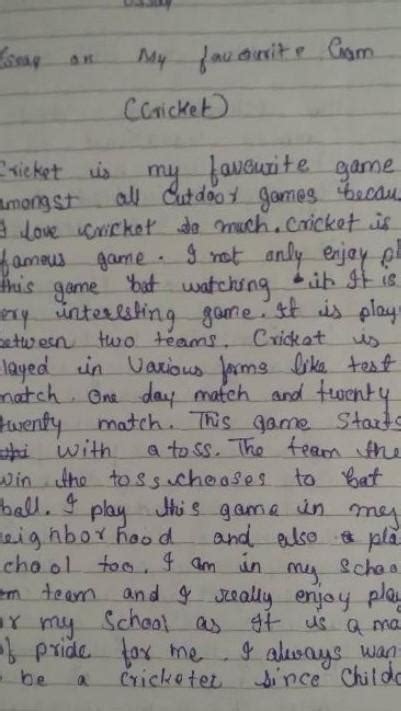 Essay
Essay on My favourite Gam
(Cricket)
Cricket is my favourite game
amongst all outdoor games becau
I love cricket so much. Cricket is
famous game. I not only enjoy pl
this game bat watching it. It is
ery interesting game. It is play
between two teams. Cricket is
layed in Various forms like test
match, One day match and twenty
twenty match. This game Starts
with a toss. The team the
win the toss chooses to bat
ball. I play this game in my
eighborhood and also pla
chool too. I am in my schoo
em team and I really enjoy play
or my School as It is a ma
of pride for me. I always wan
be a cricketer since Childo